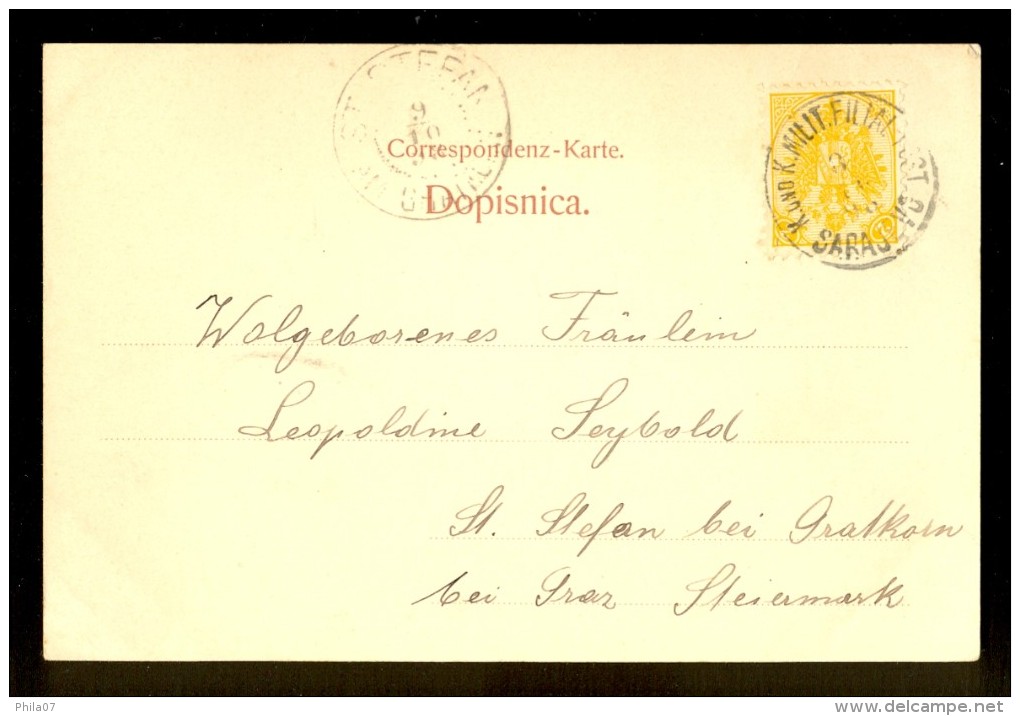 ST. STEFAN
9
10
Correspondenz-Karte.
Dopisnica.
K. UND K. MILIT. FILIAL POST
SARAJEVO
Wolgeborenes Fräulein
Leopoldine Seybold
St. Stefan bei Gratkorn
bei Graz Steiermark
Phila07
www.delcampe.net